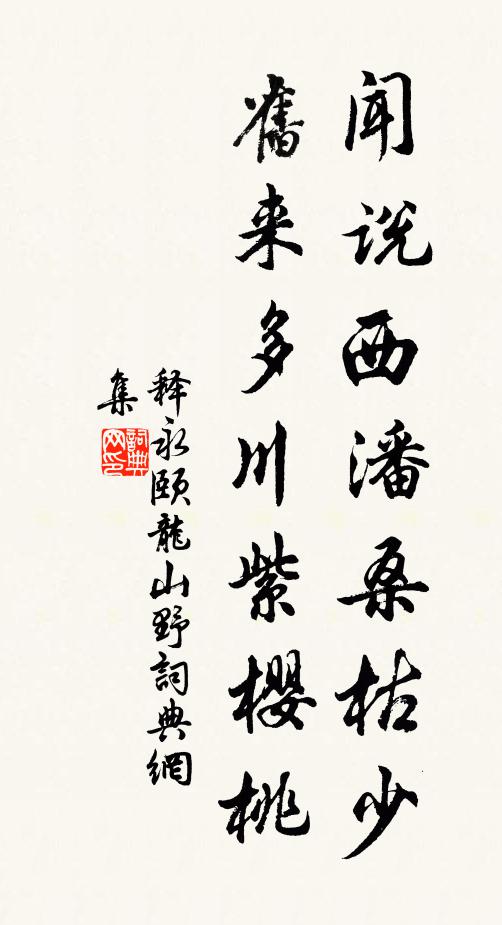 闻说西潘桑枯少
旧来多川紫樱桃
释永颐龍山野詞典網
集
詞典网印